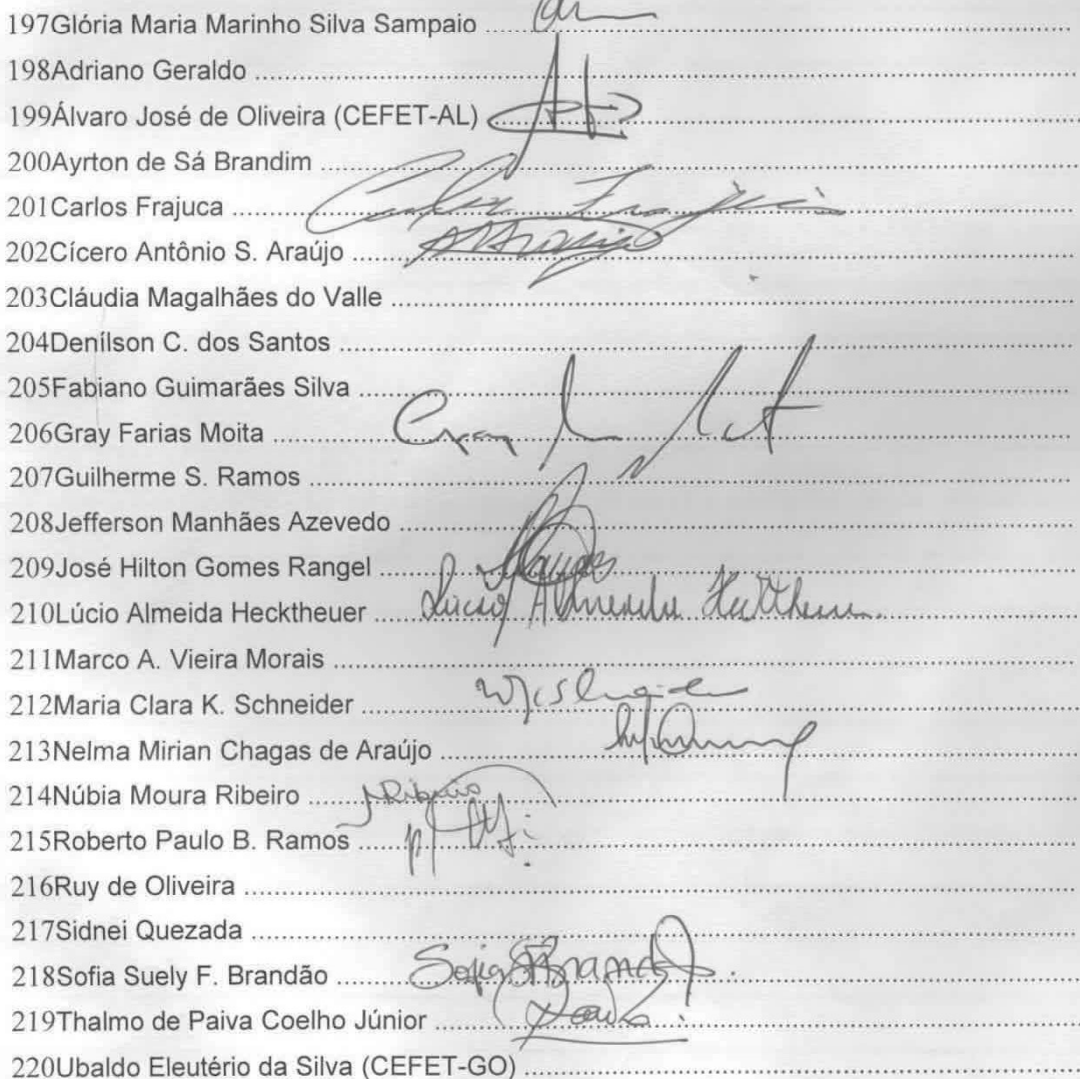 197Glória Maria Marinho Silva Sampaio ........................................
198Adriano Geraldo ........................................
199Álvaro José de Oliveira (CEFET-AL) ........................................
200Ayrton de Sá Brandim ........................................
201Carlos Frajuca ........................................ Carlos Frajuca
202Cícero Antônio S. Araújo ........................................
203Cláudia Magalhães do Valle ........................................
204Denílson C. dos Santos ........................................
205Fabiano Guimarães Silva ........................................
206Gray Farias Moita ........................................ Gray
207Guilherme S. Ramos ........................................
208Jefferson Manhães Azevedo ........................................
209José Hilton Gomes Rangel ........................................
210Lúcio Almeida Hecktheuer ........................................ Lúcio Almeida Hecktheuer
211Marco A. Vieira Morais ........................................
212Maria Clara K. Schneider ........................................
213Nelma Mirian Chagas de Araújo ........................................
214Núbia Moura Ribeiro ........................................ Ribeiro
215Roberto Paulo B. Ramos ........................................
216Ruy de Oliveira ........................................
217Sidnei Quezada ........................................
218Sofia Suely F. Brandão ........................................ Sofia Brandão
219Thalmo de Paiva Coelho Júnior ........................................
220Ubaldo Eleutério da Silva (CEFET-GO) ........................................